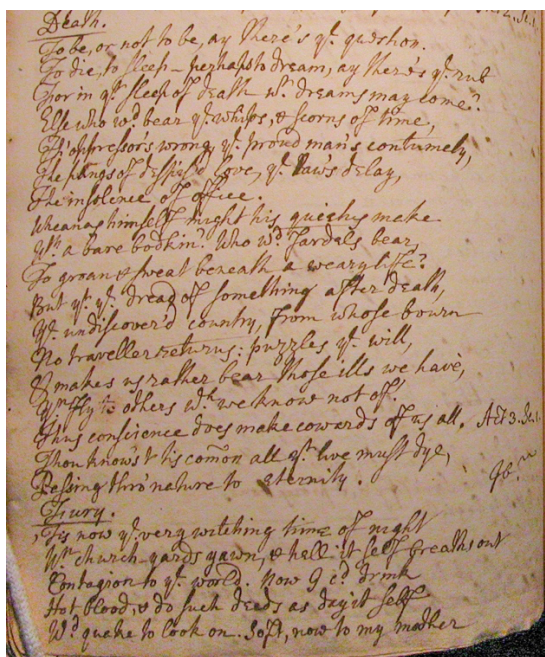 Death.
To be, or not to be, ay there's yt. question.
To die, to sleep – perhaps to dream, ay there's ye. rub
For in yt. sleep of death wt. dreams may come?
Else who wd. bear ye. whips, & scorns of time,
Th' oppressor's wrong, ye. proud man's contumely,
The pangs of despised love, ye. laws delay,
The insolence of office.
Whenas himself might his quietus make
Wth. a bare bodkin? Who wd. fardels bear,
To groan & sweat beneath a weary life?
But yt. ye. dread of something after death,
Ye. undiscover'd country, from whose bourn
No traveller returns: puzzles ye. will,
& makes us rather bear those ills we have,
Yn. fly to others wch. we know not of.
Thus conscience does make cowards of us all. Act 3. Sc. 1.
Thou know'st tis com̄on all yt. live must dye,
Passing thro' nature to eternity.
Fury.
'Tis now ye. very witching time of night
Wn. church-yards yawn, & hell it self breaths out
Contagion to ye. world. Now I cd. drink
Hot blood, & do such deeds as day it self
Wd. quake to look on. Soft, now to my mother